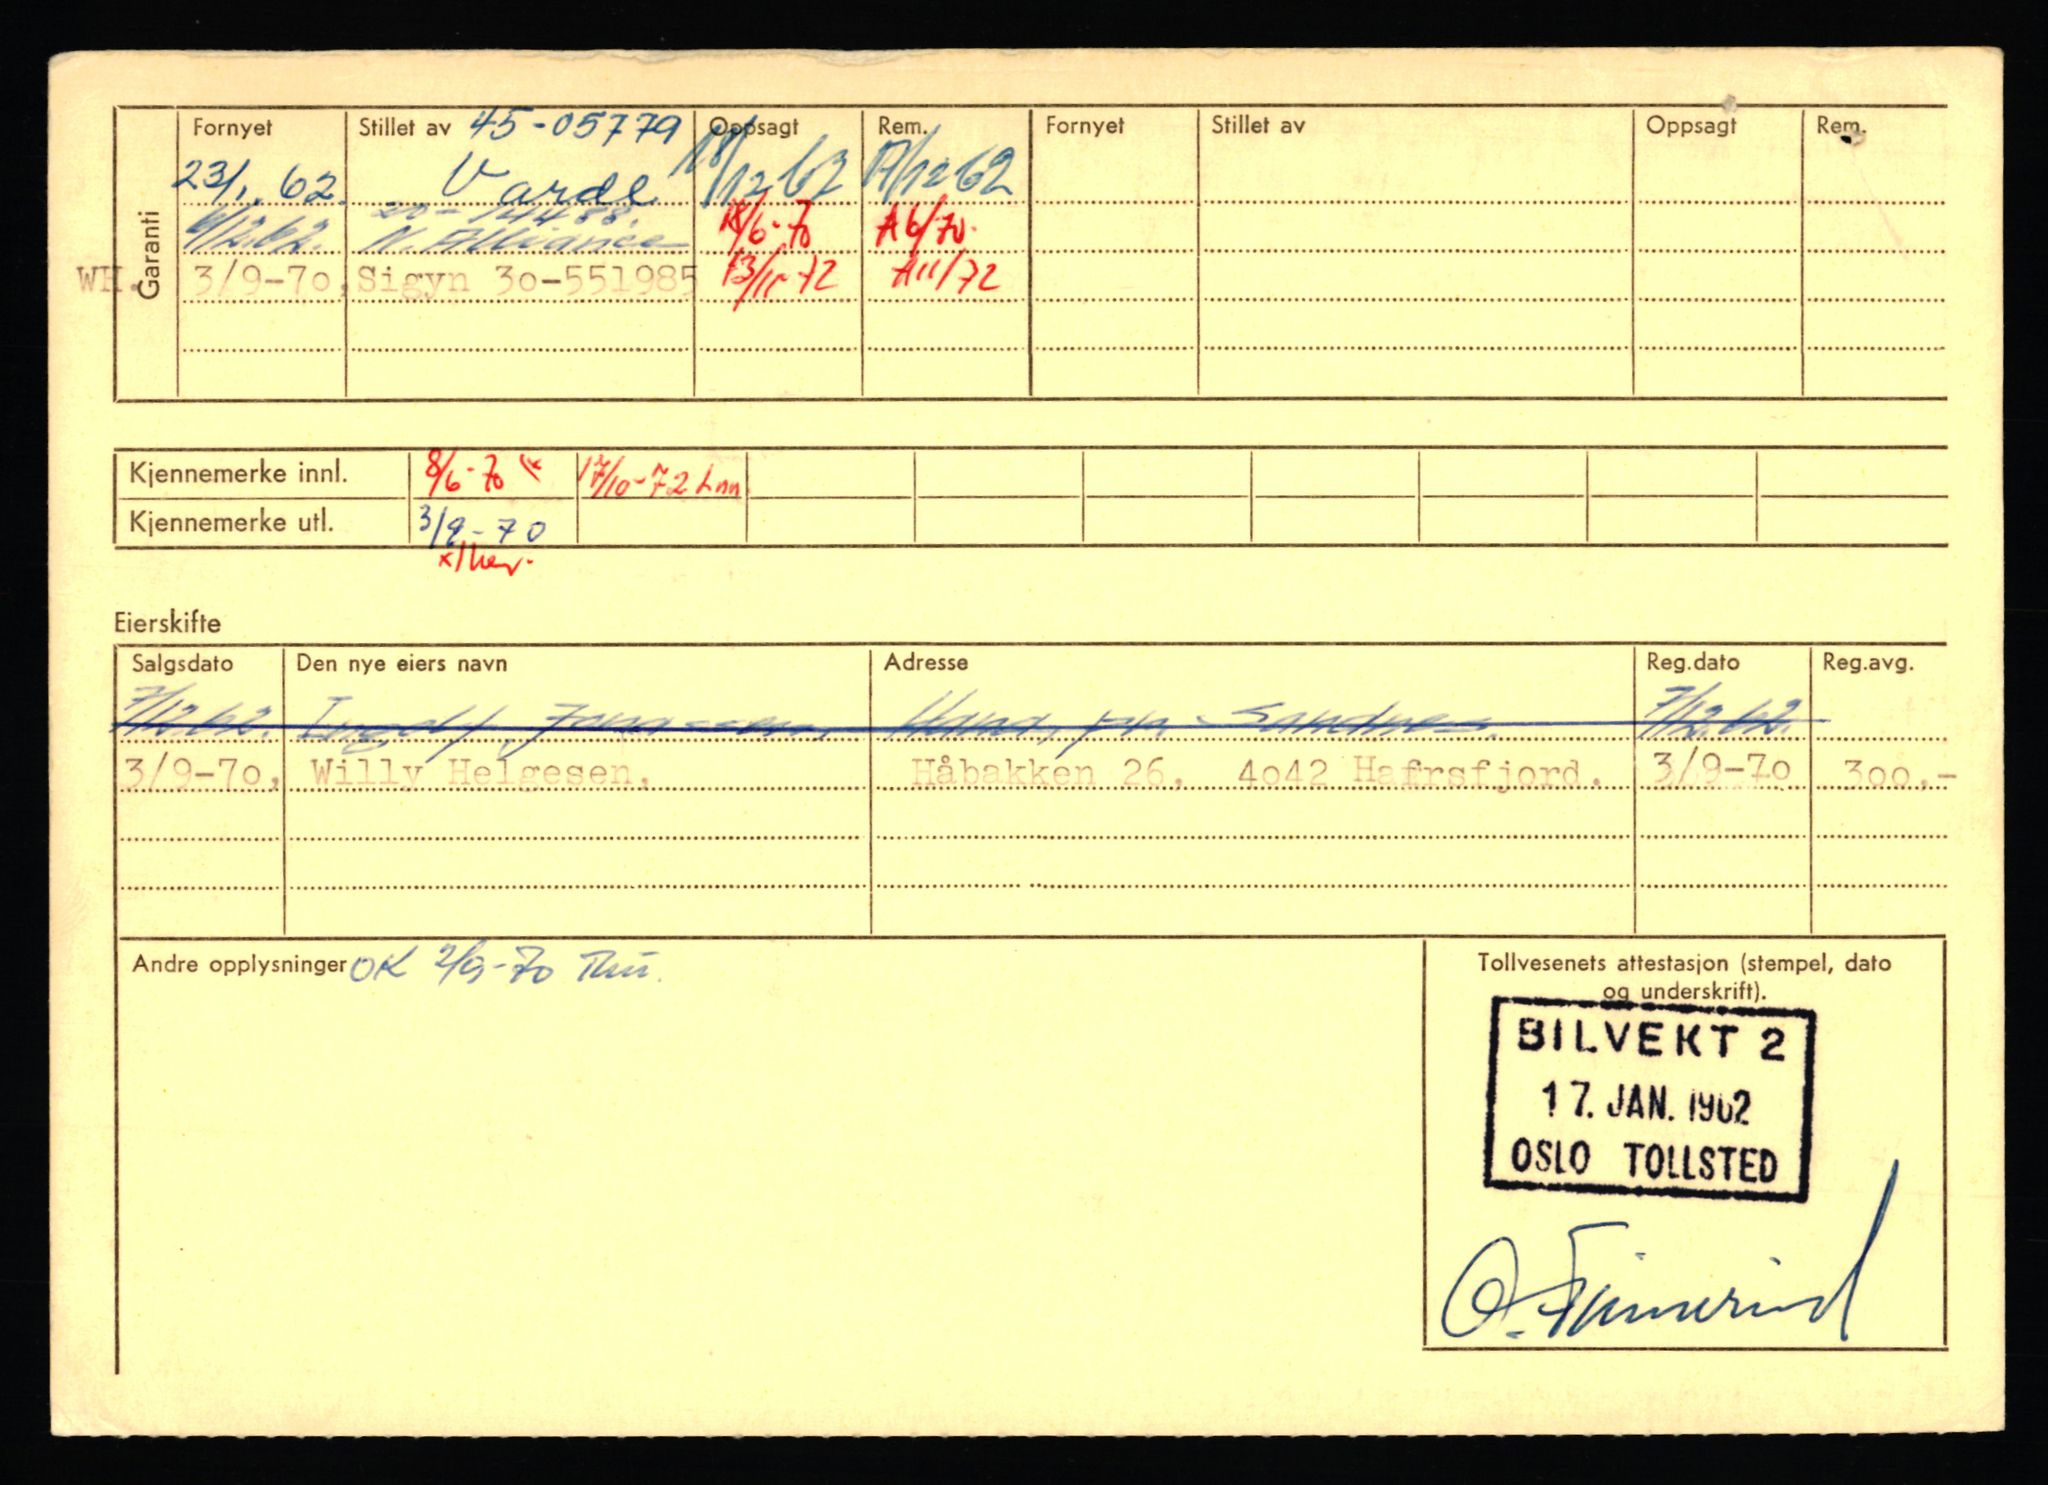 Garanti
Fornyet Stillet av 45-05779 Oppsagt Rem. Fornyet Stillet av Oppsagt Rem.
23/1.62. Varde 18/12 62 17/12 62
6/12.62. 20-14488. N. Alliance 18/6-70 A6/70.
WH. 3/9-70, Sigyn 30-551985 13/11-72 A11/72
Kjennemerke innl. 8/6-70 17/10-72
Kjennemerke utl. 3/9-70
Eierskifte
Salgsdato Den nye eiers navn Adresse Reg.dato Reg.avg.
7/12.62. Ingolf Jonassen, Hana, pr. Sandnes. 7/12.62.
3/9-70, Willy Helgesen, Håbakken 26, 4042 Hafrsfjord. 3/9-70 300.-
Andre opplysninger OK 2/9-70
Tollvesenets attestasjon (stempel, dato
og underskrift).
BILVEKT 2
17. JAN. 1962
OSLO TOLLSTED